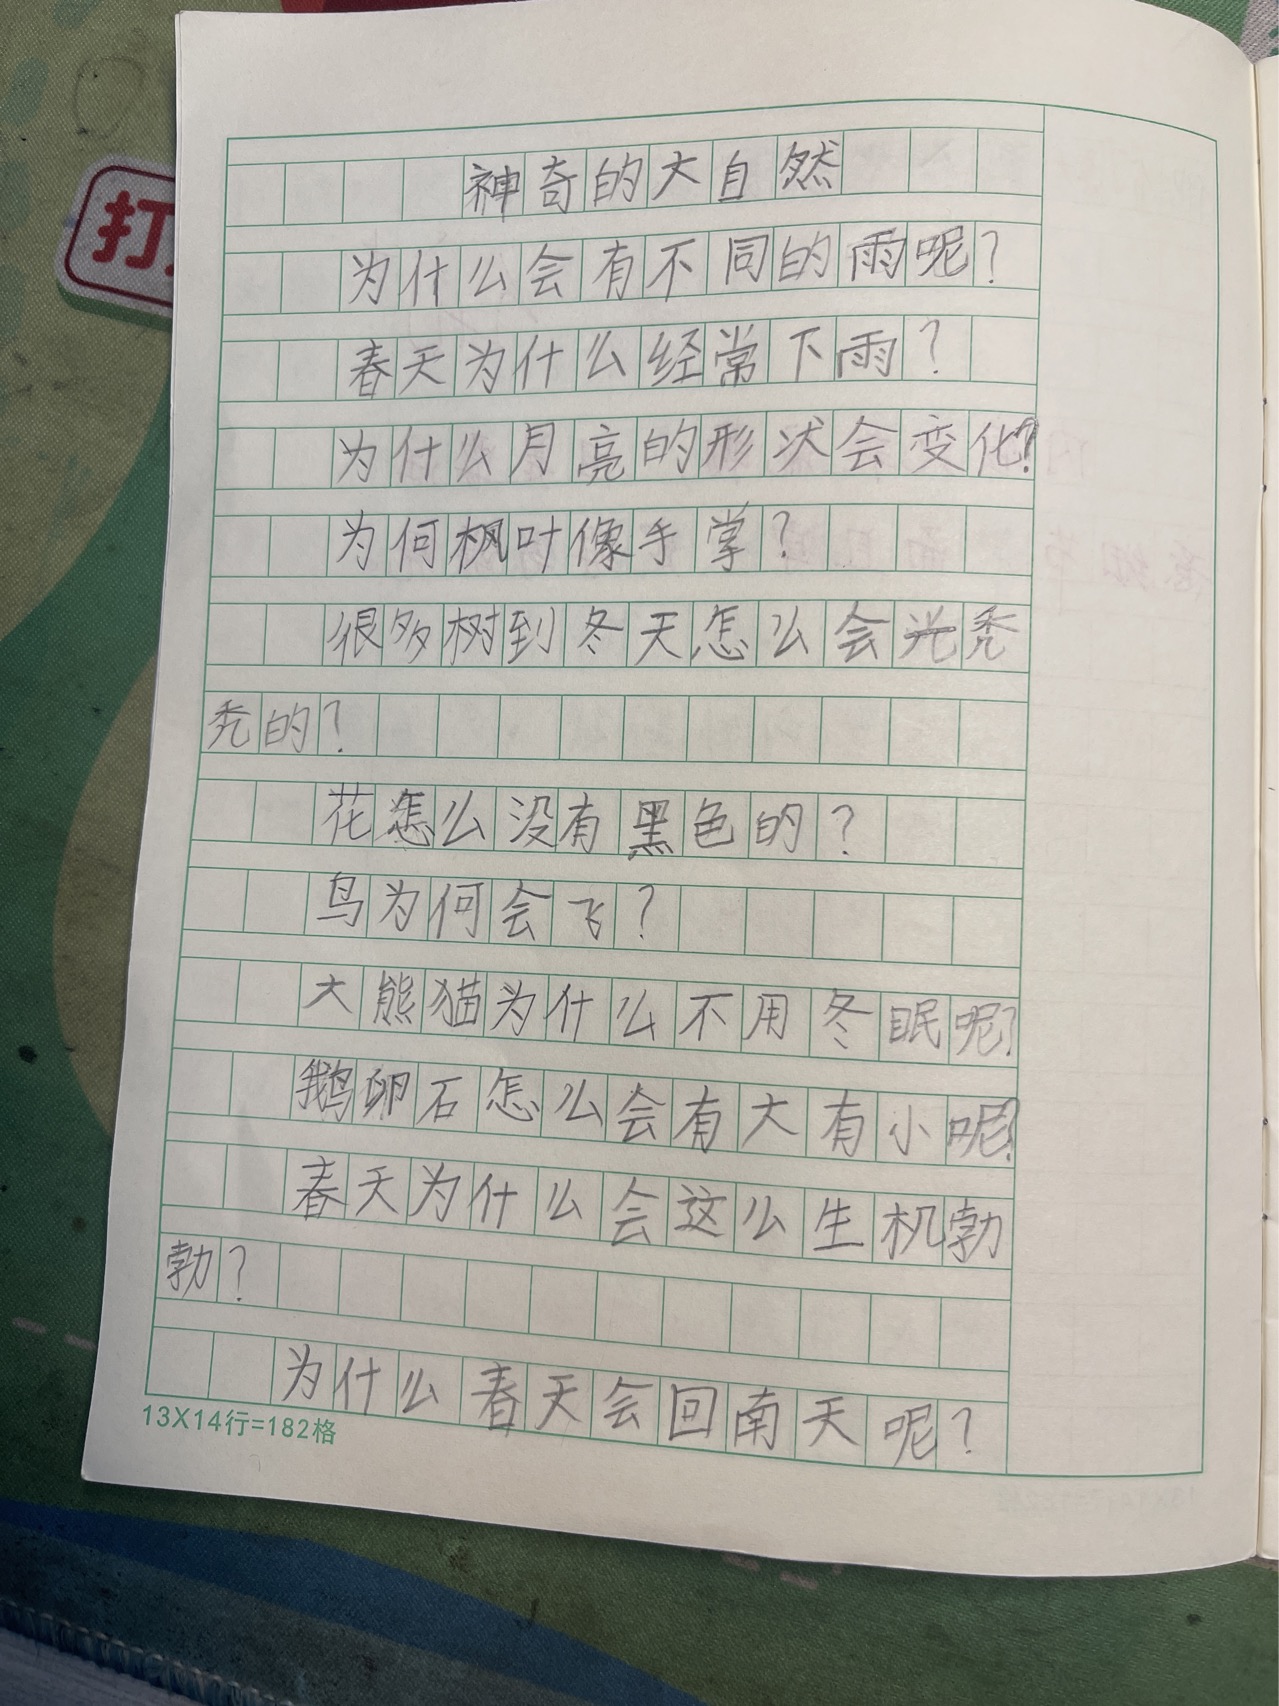 打
神奇的大自然
为什么会有不同的雨呢？
春天为什么经常下雨？
为什么月亮的形状会变化？
为何枫叶像手掌？
很多树到冬天怎么会光秃
秃的？
花怎么没有黑色的？
鸟为何会飞？
大熊猫为什么不用冬眠呢？
鹅卵石怎么会有大有小呢？
春天为什么会这么生机勃
勃？
为什么春天会回南天呢？
13X14行=182格